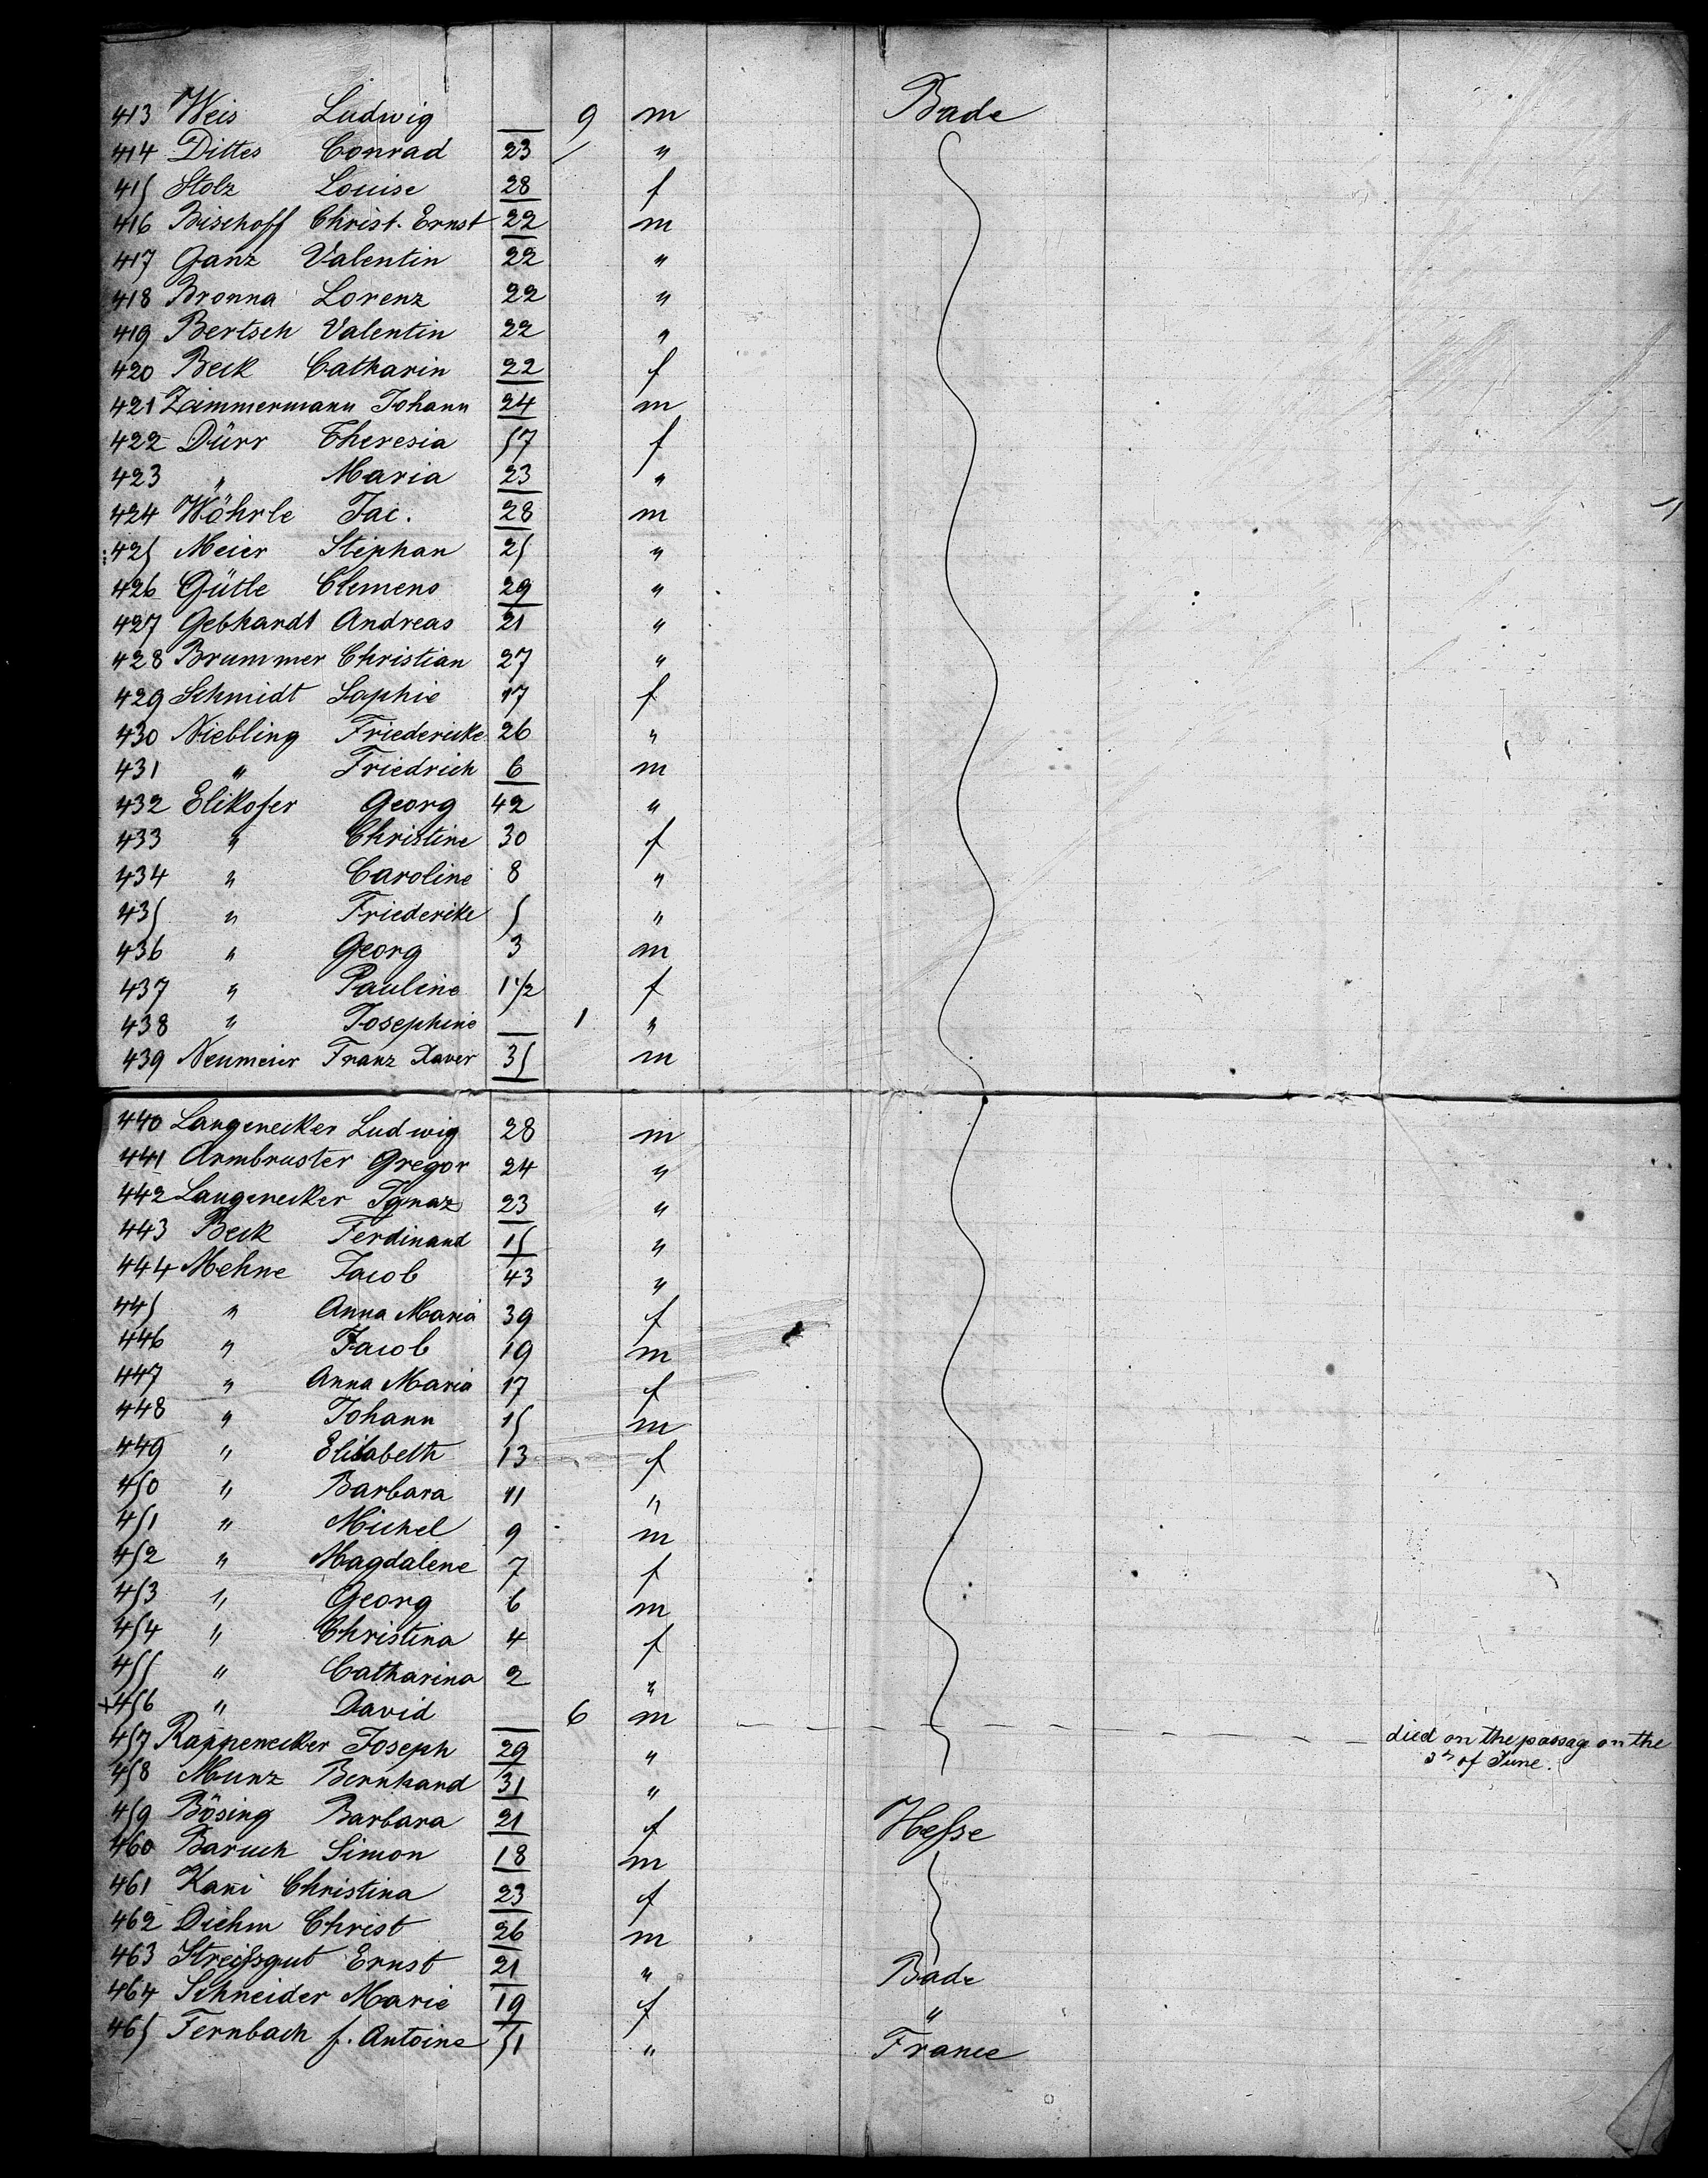 413 Weis Ludwig 9 m Bade
414 Dittes Conrad 23 "
415 Stolz Louise 28 f
416 Bischoff Christ. Ernst 22 m
417 Ganz Valentin 22 "
418 Bronna Lorenz 22 "
419 Bertsch Valentin 22 "
420 Beck Catharin 22 f
421 Zimmermann Johann 24 m
422 Dürr Theresia 57 f
423 " Maria 23 "
424 Wöhrle Jac. 28 m
425 Meier Stephan 25 "
426 Gütle Clemens 29 "
427 Gebhardt Andreas 21 "
428 Brummer Christian 27 "
429 Schmidt Sophie 17 f
430 Niebling Friedericke 26 "
431 " Friedrich 6 m
432 Elikofer Georg 42 "
433 " Christine 30 f
434 " Caroline 8 "
435 " Friederike 5 "
436 " Georg 3 m
437 " Pauline 1 1/2 f
438 " Josephine 1 "
439 Neumeier Franz Xaver 35 m
440 Langenecker Ludwig 28 m
441 Armbruster Gregor 24 "
442 Langenecker Ignaz 23 "
443 Beck Ferdinand 15 "
444 Mehne Jacob 43 "
445 " Anna Maria 39 f
446 " Jacob 19 m
447 " Anna Maria 17 f
448 " Johann 15 m
449 " Elisabeth 13 f
450 " Barbara 11 "
451 " Michel 9 m
452 " Magdalene 7 f
453 " Georg 6 m
454 " Christina 4 f
455 " Catharina 2 "
+456 " David 6 m died on the passag on the
3th of June.
457 Rappenecker Joseph 29 "
458 Munz Bernhard 31 "
459 Bösing Barbara 21 f Hesse
460 Baruch Simon 18 m
461 Kani Christina 23 f
462 Diehm Christ 26 m
463 Streissgut Ernst 21 " Bade
464 Schneider Marie 19 f "
465 Fernbach f. Antoine 51 " France